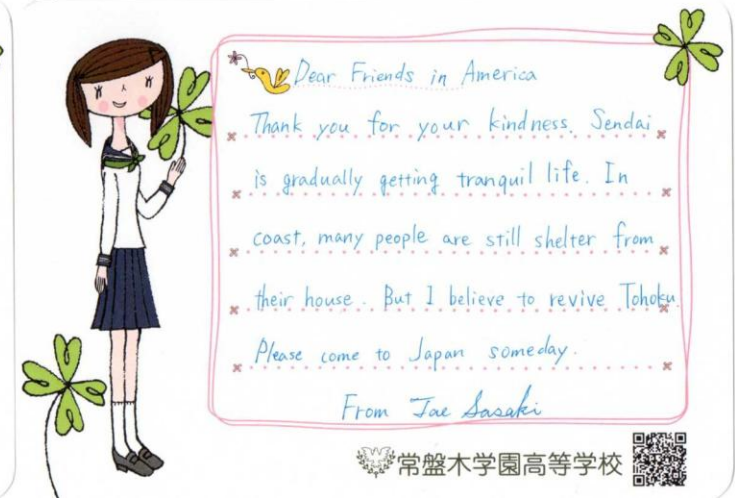 Dear Friends in America
Thank you for your kindness. Sendai
is gradually getting tranquil life. In
coast, many people are still shelter from
their house. But I believe to revive Tohoku.
Please come to Japan someday.
From Jae Sasaki
常盤木学園高等学校